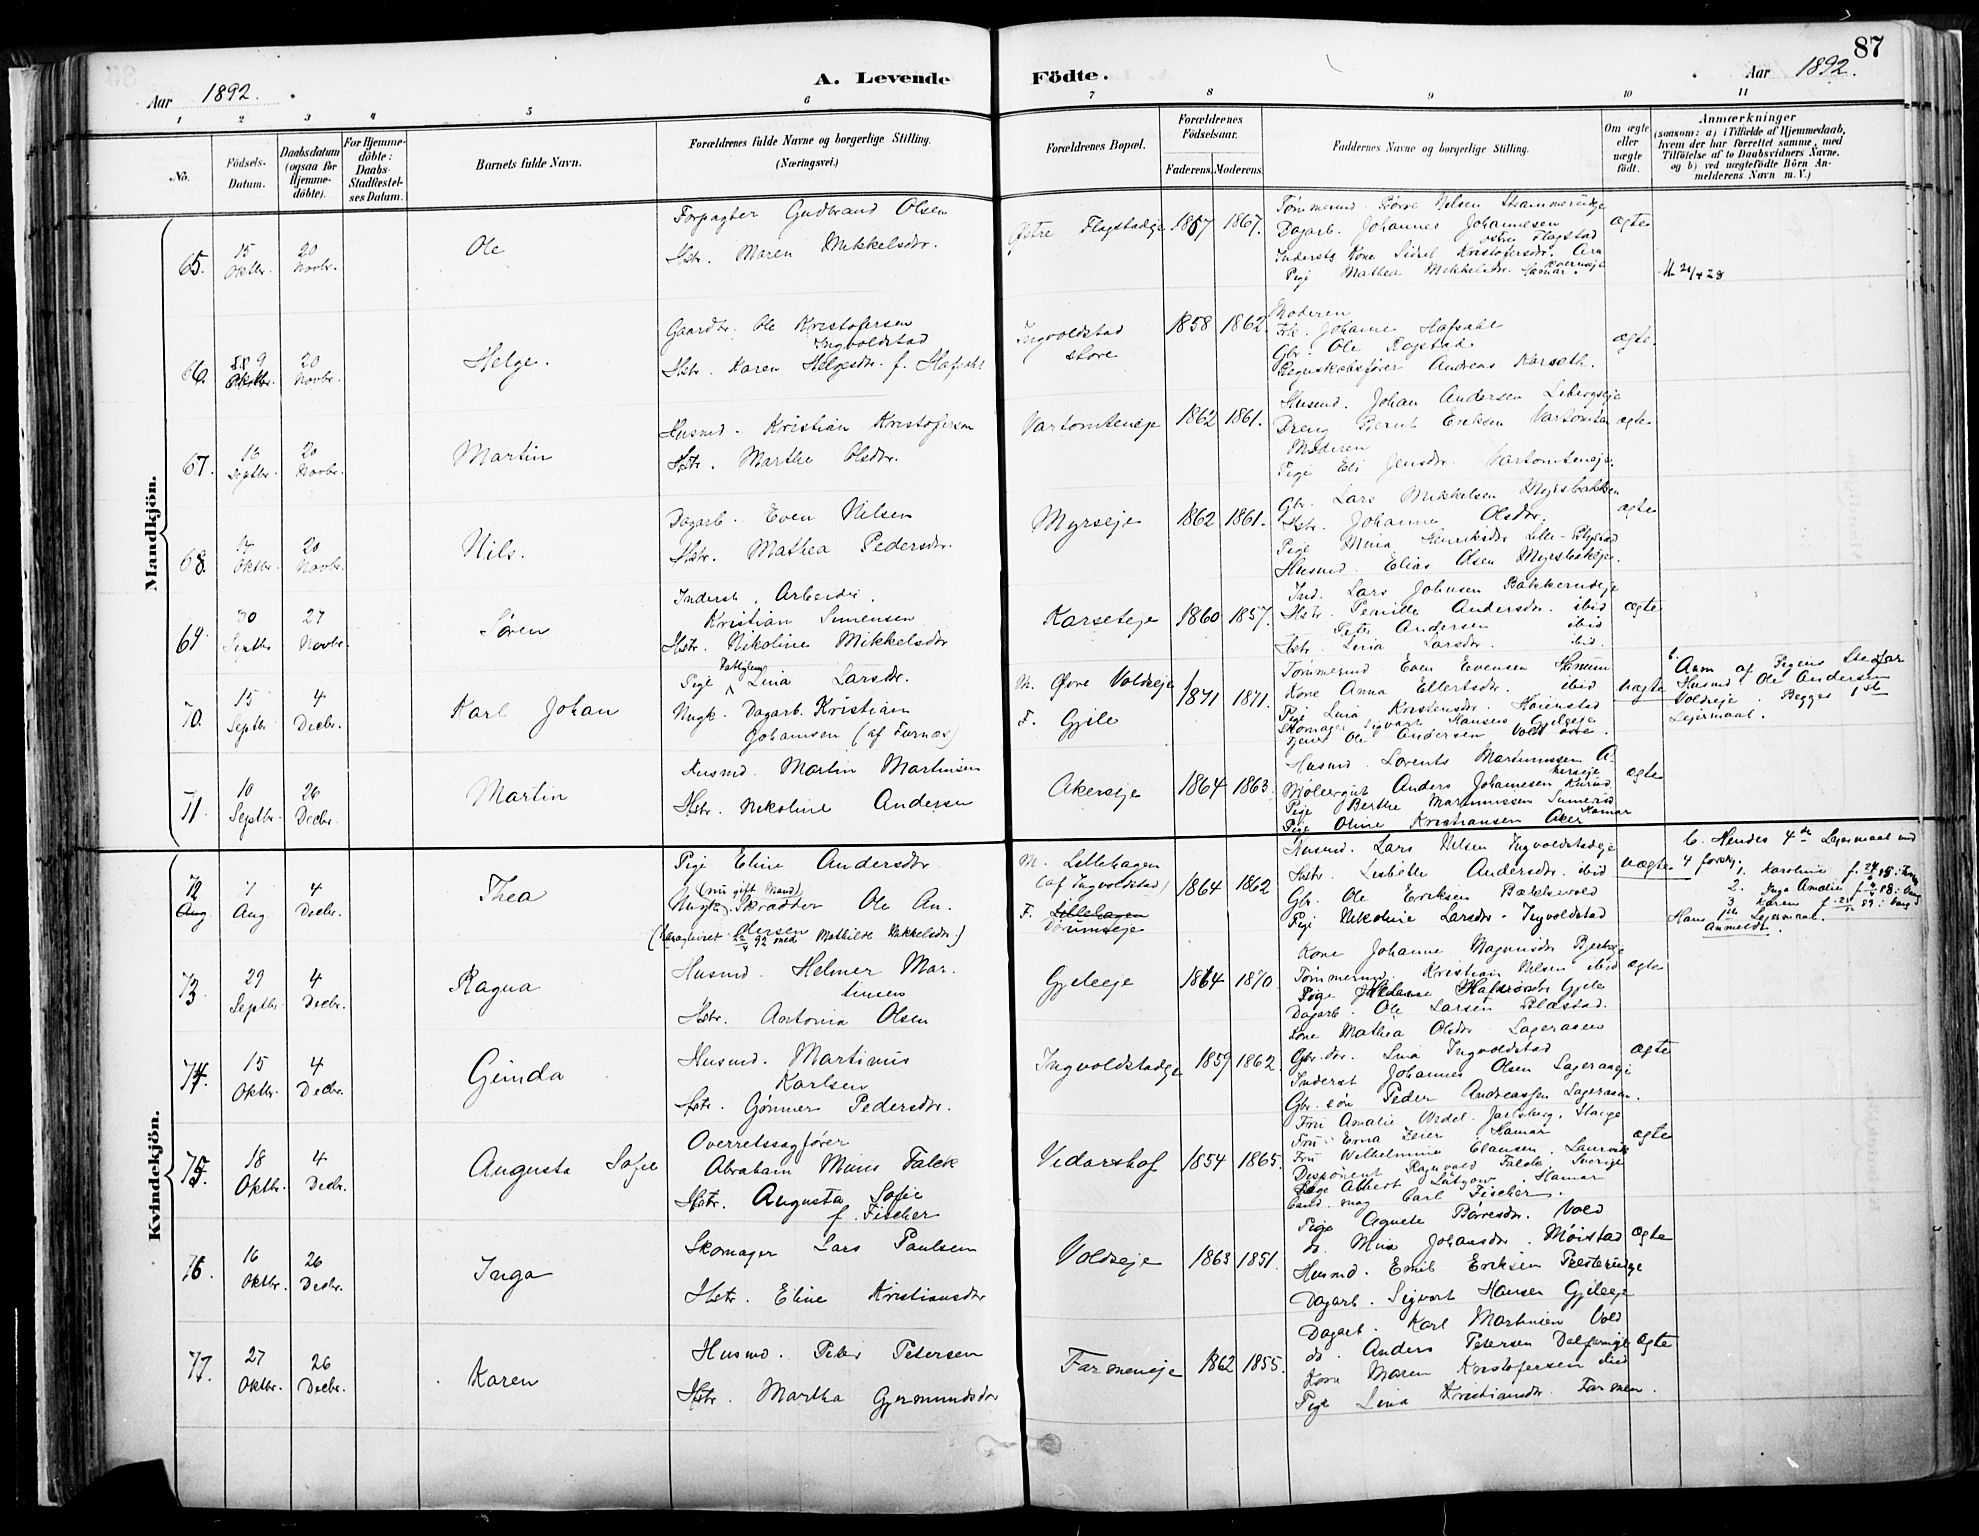 87
Aar 1892.
A. Levende Födte.
Aar 1892.
1 2 3 4 5 6 7 8 9 10 11
No.
Födsels-Datum.
Daabsdatum (ogsaa for Hjemme-döbte).
For Hjemme-döbte: Daabs-Stadfæstel-ses Datum.
Barnets fulde Navn.
Forældrenes fulde Navne og borgerlige Stilling. (Næringsvei.)
Forældrenes Bopæl.
Forældrenes Födselsaar.
Faderens. Moderens.
Faddernes Navne og borgerlige Stilling.
Om ægte eller uægte födt.
Anmærkninger
(saasom: a) i Tilfælde af Hjemmedaab,
hvem der har forrettet samme, med
Tilföielse af to Daabsvidners Navne.
og b) ved uægtefödte Börn An-
melderens Navn m. V.)
Mandkjön.
65. 15 Oktbr. 20 Novbr. Ole
Forpagter Gudbrand Olsen
Hstr. Maren Mikkelsdr.
Østre Flagstadeje 1867 1867. ægte
Dagarb. Johannes Johannesen
østre Flagstad
Pige Mathea Mikkelsdr. Hamar.
66. 9 20 Novbr. Helge.
Gaardbr. Ole Kristofersen
Ingvoldstad
Hstr. Karen Helgesdr. f. Hafsahl
Ingvoldstad
store
1858 1862. ægte.
Moderen
Frk. Johanne Hafsahl
Gbr. Ole Rogstad
Regnskabsfører Andreas Karseth.
67. 16 Septbr. 20 Novbr. Martin
Husmd. Kristian Kristofersen
Hstr. Marthe Olsdr.
Vartomteneje 1862 1861. ægte
Husmd. Johan Andersen
Dreng Bernt Eriksen Vartomten
Moderen
Pige Eli Jensdr. Vartomteneje.
68. 14 Oktbr. 20 Novbr. Nils.
Dagarb. Even Nilsen
Hstr. Mathea Pedersdr.
Myrseje 1862 1861. ægte
Gbr. Lars Mikkelsen Myrsbakken
Hstr. Johanne Olsdr.
Pige Mina Henriksdr. Lille-
Husmd. Elias Olsen
69. 30 Septbr. 27 Novbr. Søren
Inderst. Arbeider.
Kristian Simensen
Hstr. Nikoline Mikkelsdr
Karseteje 1860 1857. ægte
Ind. Lars Johnsen Bakkerudeje
Hstr. Pernille Andersdr. ibid
Peter Andersen ibid
Hstr. Lina Larsdr. ibid.
70. 15 Septbr. 4 Decbr. Karl Johan
Pige Lina Larsdr.
Ungk. Dagarb. Kristian
Johannsen (af Furnæs)
M. Øvre Voldseje
F. Gjile
1871 1871. uægte
Tømmermd. Even Evensen
Kone Anna Ellertsdr. ibid
Pige Lina Kristensdr.
Skomager Sigvart Hansen Gjileeje
Ole Andersen Vold øvre.
Anm af Pigens Stedfar
Husmd. Ole Andersen
Voldseje. Begges 1ste
Lejermaal.
71. 10 Septbr. 26 Decbr. Martin
Husmd. Martin Martinsen
Hstr. Nikoline Andersen
Akerseje 1864 1863. ægte
Husmd. Lorents Martinussen A-
kerseje
Anders Johannesen
Pige Berthe Martinussen
Hamar
Pige Oline Kristiansen Aker
Kvindekjön.
72 7 Aug. 4 Decbr. Thea
Pige Eline Andersdr.
(nu gift Mand)
Ungk. Skrædder Ole An-
dersen
92 med Mathilde Mikkelsdr.)
M. Lillehagen
(af Ingvoldstad)
F. Lillehagen
1864 1862 uægte
Husmd. Lars Nilsen Ingvoldstadeje
Hstr. Lisbeth Andersdr. ibid
Gbr. Ole Eriksen Bækkevold
Pige Nikoline Larsdr. Ingvoldstad
C. Hendes 4de Lejermaal med
4 forskj. 1. Karoline
2. Inga Amalie
3 Karen
Hans 1ste Lejermaal.
Anmeldt.
73. 29 Septbr 4 Decbr. Ragna
Husmd. Helmer Mar-
tinsen
Hstr. Antonia Olsen
Gjileeje 1864 1870. ægte
Kone Johanne Magnusdr
Tømmermd. Kristian Nilsen ibid
Dagarb. Ole Larsen
74. 15 Oktbr. 4 Decbr. Ginda
Husmd. Martinus
Karlsen
Hstr. Gönner Pedersdr.
Ingvoldstadeje 1859 1862. ægte
Kone Mathea Olsdr. Lageraaen
Gbr.dr. Lina Ingvoldstad
Inderst Johannes Olsen
Gbr. søn Peder Andreassen Lageraaen.
75. 18 Oktbr. 4 Decbr. Augusta Sofie
Overretssagfører
Abraham Muus Falck
Hstr. Augusta Sofie
f. Fischer
Vidarshof 1854 1865. ægte
Fru Amalie Wedel Jarlsberg,
Fru Erna Hamar
Fru Wilhelmine Clausen, Laurvik
Disponent Ragnvald Falck, Sverige
Albert Lützow, Hamar
Cand. mag Carl Fischer.
76. 16 Oktbr. 26 Decbr. Inga
Skomager Lars Paulsen
Hstr. Eline Kristiansdr
Voldseje 1863 1851. ægte
Pige Agnete Börresdr. Vold
do. Mina Johansdr. Møistad
Husmd. Emil Eriksen Presterudeje
Dagarb. Sigvart Hansen Gjileeje
77. 27 Oktbr. 26 Decbr. Karen
Husmd. Peter Petersen
Hstr. Martha Gjermundsdr
Farmeneje 1862 1855. ægte
Dagarb. Karl Martinsen Vold
do. Anders Petersen
Kone Maren Kristofersen ibid
Pige Lina Kristiansdr. Farmen.